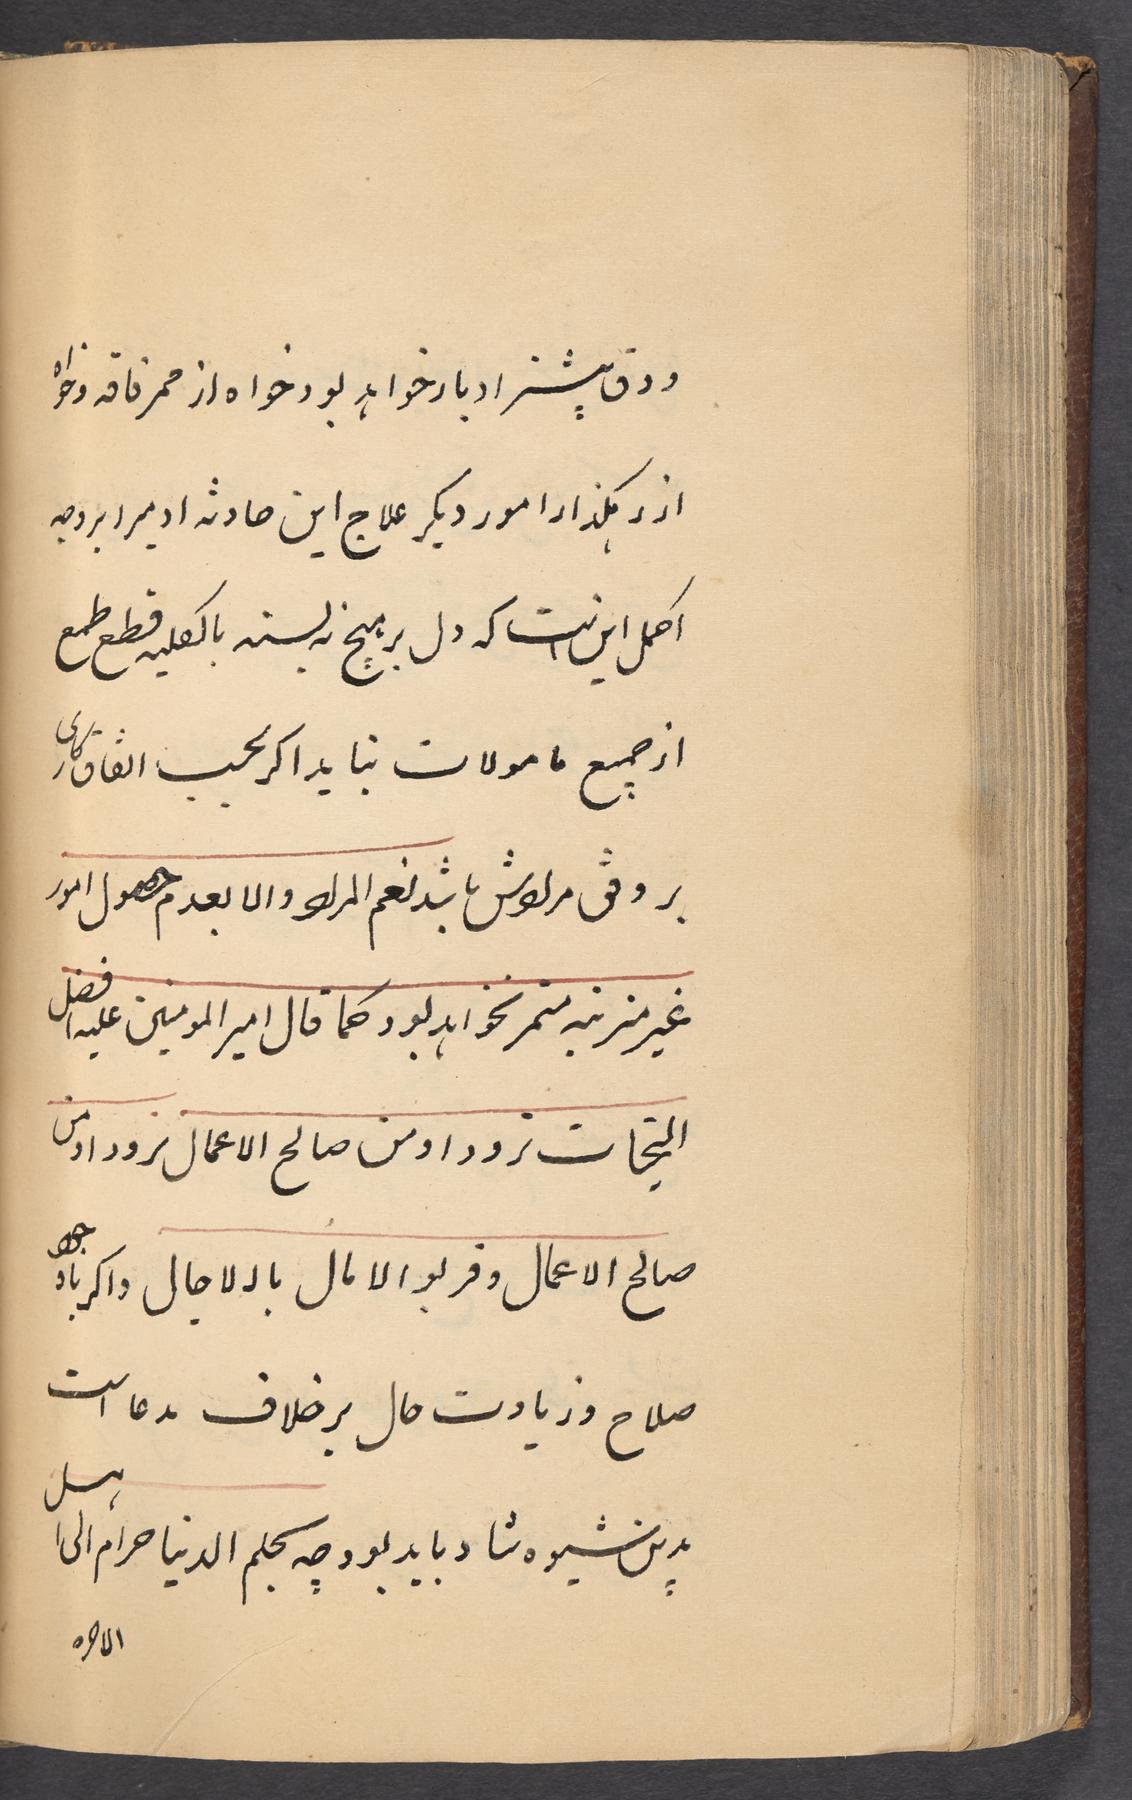 ودق پیشتر ادبار خواهد بود خواه از ممر فاقه و خواه
از رهکذار امور دیکر علاج این حادثه ادمیرا بر وجه
اکمل این است که دل بر هیچ نه بسته بالکلیه قطع طمع
از جمیع مامولات نباید اکر بحسب اتفاق کاری
بر وفق مرادش باشد نعم المراد والا بعدم حصول امور
غیر مترتبه متمر نخواهد بود کما قال امیر المومنین علیه افضل
التحیات تزودوا من صالح الاعمال تزودوا من
صالح الاعمال وقربو الامال بالاجال واکر باوجود
صلاح وزیادت حال بر خلاف مدعا است
بدین شیوه شاد باید بود چه بحکم الدنیا حرام الی اهل
الاخره